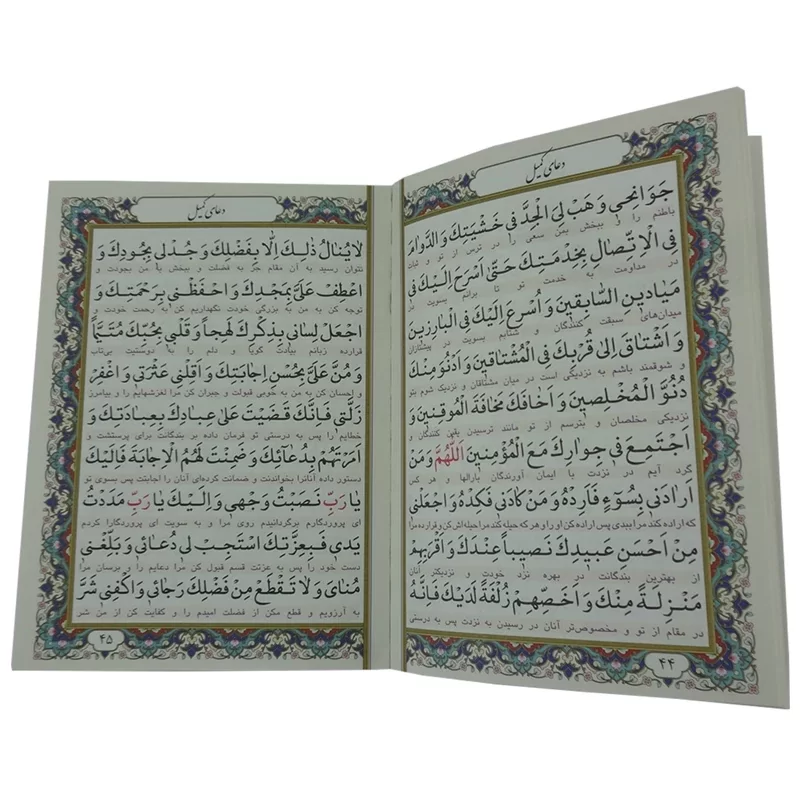 دعای کمیل
جَوَانِحِي وَ هَبْ لِيَ الْجِدَّ فِي خَشْيَتِكَ وَ الدَّوَامَ
باطنم را و ببخش بمن سعی را در ترس از تو و ثبات
فِي الْاِتِّصَالِ بِخِدْمَتِكَ حَتّىٰ اَسْرَحَ اِلَيْكَ فِي
در مداومت به خدمت تو تا برانم بسویت در
مَيَادِينِ السَّابِقِينَ وَ اُسْرِعَ اِلَيْكَ فِي الْبَارِزِينَ
میدان‌های سبقت کنندگان و شتابم بسویت در پیشتازان
وَ اَشْتَاقَ اِلىٰ قُرْبِكَ فِي الْمُشْتَاقِينَ وَ اَدْنُوَ مِنْكَ
و شوقمند باشم به نزدیکی است در میان مشتاقان و نزدیک شوم بتو
دُنُوَّ الْمُخْلِصِينَ وَ اَخَافَكَ مَخَافَةَ الْمُوقِنِينَ وَ
نزدیکی مخلصان و بترسم از تو مانند ترسیدن یقین کنندگان و
اَجْتَمِعَ فِي جِوَارِكَ مَعَ الْمُؤْمِنِينَ اَللّٰهُمَّ وَ مَنْ
گرد آیم در نزدت با ایمان آورندگان بارالها و هر کس
اَرَادَنِي بِسُوءٍ فَاَرِدْهُ وَ مَنْ كَادَنِي فَكِدْهُ وَ اجْعَلْنِي
که اراده کند مرا ببدی پس اراده کن او را و هر که حیله کند مرا حیله اش کن و قرارده مرا
مِنْ اَحْسَنِ عَبِيدِكَ نَصِيباً عِنْدَكَ وَ اَقْرَبِهِمْ
از بهترین بندگانت در بهره نزد خودت و نزدیکتر آنان
مَنْزِلَةً مِنْكَ وَ اَخَصِّهِمْ زُلْفَةً لَدَيْكَ فَاِنَّهُ
در مقام از تو و مخصوص‌تر آنان در رسیدن به نزدت پس به درستی که
۴۴
دعای کمیل
لَا يُنَالُ ذٰلِكَ اِلَّا بِفَضْلِكَ وَ جُدْ لِي بِجُودِكَ وَ
نتوان رسید به آن مقام جز به فضلت و ببخش با من بجودت و
اعْطِفْ عَلَيَّ بِمَجْدِكَ وَ احْفَظْنِي بِرَحْمَتِكَ وَ
توجه کن به من به بزرگی خودت نگهداریم کن به رحمت خودت و
اجْعَلْ لِسَانِي بِذِكْرِكَ لَهِجاً وَ قَلْبِي بِحُبِّكَ مُتَيَّماً
قرارده زبانم بیادت گویا و دلم را به دوستیت بی‌تاب
وَ مُنَّ عَلَيَّ بِحُسْنِ اِجَابَتِكَ وَ اَقِلْنِي عَثْرَتِي وَ اغْفِرْ
و احسان کن به من به خوبی قبولت و جبران کن مرا لغزشهایم را و بیامرز
زَلَّتِي فَاِنَّكَ قَضَيْتَ عَلىٰ عِبَادِكَ بِعِبَادَتِكَ وَ
خطایم را پس به درستی تو فرمان داده بر بندگانت برای پرستشت و
اَمَرْتَهُمْ بِدُعَائِكَ وَ ضَمِنْتَ لَهُمُ الْاِجَابَةَ فَاِلَيْكَ
دستور داده آنانرا بخواندنت و ضمانت کرده‌ای آنان را اجابت پس بسوی تو
يَا رَبِّ نَصَبْتُ وَجْهِي وَ اِلَيْكَ يَا رَبِّ مَدَدْتُ
ای پروردگارم برگردانیدم روی مرا و به سویت ای پروردگارا کردم
يَدِي فَبِعِزَّتِكَ اسْتَجِبْ لِي دُعَائِي وَ بَلِّغْنِي
دست خود را پس به عزتت قسم قبول کن مرا دعایم را و برسان مرا
مُنَايَ وَ لَا تَقْطَعْ مِنْ فَضْلِكَ رَجَائِي وَ اكْفِنِي شَرَّ
به آرزویم و قطع مکن از فضلت امیدم را و کفایت کن از من شر
۴۵